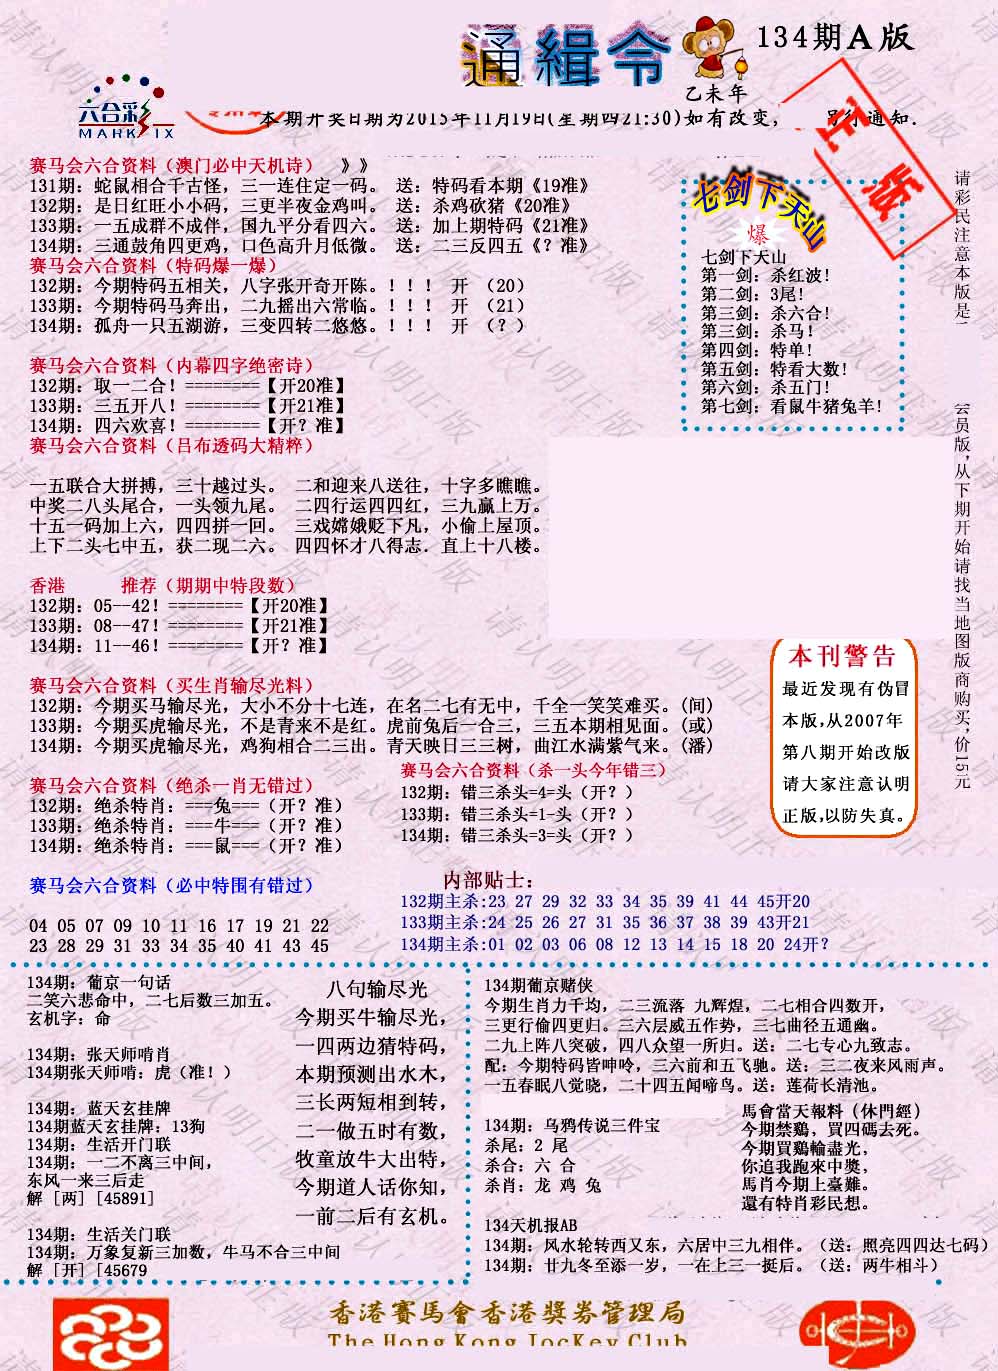 通緝令
134期A版
乙未年
六合彩
MARK SIX
本期开奖日期为2015年11月19日(星期四21:30)如有改变,
通知.
赛马会六合资料（澳门必中天机诗） 》》
131期: 蛇鼠相合千古怪, 三一连住定一码。 送: 特码看本期《19准》
132期: 是日红旺小小码, 三更半夜金鸡叫。 送: 杀鸡砍猪《20准》
133期: 一五成群不成伴, 国九平分看四六。 送: 加上期特码《21准》
134期: 三通鼓角四更鸡, 口色高升月低微。 送: 二三反四五《? 准》
赛马会六合资料（特码爆一爆）
132期: 今期特码五相关, 八字张开奇开陈。! ! ! 开 （20）
133期: 今期特码马奔出, 二九摇出六常临。! ! ! 开 （21）
134期: 孤舟一只五湖游, 三变四转二悠悠。! ! ! 开 （? ）
赛马会六合资料（内幕四字绝密诗）
132期: 取一二合! ========【开20准】
133期: 三五开八! ========【开21准】
134期: 四六欢喜! ========【开? 准】
赛马会六合资料（吕布透码大精粹）
一五联合大拼搏, 三十越过头。 二和迎来八送往, 十字多瞧瞧。
中奖二八头尾合, 一头领九尾。 二四行运四四红, 三九赢上万。
十五一码加上六, 四四拼一回。 三戏嫦娥贬下凡, 小偷上屋顶。
上下二头七中五, 获二现二六。 四四怀才八得志. 直上十八楼。
香港 推荐（期期中特段数）
132期: 05--42! ========【开20准】
133期: 08--47! ========【开21准】
134期: 11--46! ========【开? 准】
赛马会六合资料（买生肖输尽光料）
132期: 今期买马输尽光, 大小不分十七连, 在名二七有无中, 千全一笑笑难买。(间)
133期: 今期买虎输尽光, 不是青来不是红。虎前兔后一合三, 三五本期相见面。(或)
134期: 今期买虎输尽光, 鸡狗相合二三出。青天映日三三树, 曲江水满紫气来。(潘)
赛马会六合资料（绝杀一肖无错过）
132期: 绝杀特肖: ===兔===（开? 准）
133期: 绝杀特肖: ===牛===（开? 准）
134期: 绝杀特肖: ===鼠===（开? 准）
赛马会六合资料（杀一头今年错三）
132期: 错三杀头=4=头（开? ）
133期: 错三杀头=1-头（开? ）
134期: 错三杀头=3=头（开? ）
赛马会六合资料（必中特围有错过）
04 05 07 09 10 11 16 17 19 21 22
23 28 29 31 33 34 35 40 41 43 45
内部贴士:
132期主杀:23 27 29 32 33 34 35 39 41 44 45开20
133期主杀:24 25 26 27 31 35 36 37 38 39 43开21
134期主杀:01 02 03 06 08 12 13 14 15 18 20 24开?
七剑下天山
爆
七剑下天山
第一剑: 杀红波!
第二剑: 3尾!
第三剑: 杀六合!
第三剑: 杀马!
第四剑: 特单!
第五剑: 特看大数!
第六剑: 杀五门!
第七剑: 看鼠牛猪兔羊!
请彩民注意本版是
会员版,从下期开始请找当地图版商购买,价15元
本刊警告
最近发现有伪冒
本版,从2007年
第八期开始改版
请大家注意认明
正版,以防失真。
134期: 葡京一句话
二笑六悲命中, 二七后数三加五。
玄机字: 命
134期: 张天师啃肖
134期张天师啃: 虎（准! ）
134期: 蓝天玄挂牌
134期蓝天玄挂牌: 13狗
134期: 生活开门联
134期: 一二不离三中间,
东风一来三后走
解 [两] [45891]
134期: 生活关门联
134期: 万象复新三加数, 牛马不合三中间
解 [开] [45679
八句输尽光
今期买牛输尽光,
一四两边猜特码,
本期预测出水木,
三长两短相到转,
二一做五时有数,
牧童放牛大出特,
今期道人话你知,
一前二后有玄机。
134期葡京赌侠
今期生肖力千均, 二三流落 九辉煌, 二七相合四数开,
三更行偷四更归。三六层威五作势, 三七曲径五通幽。
二九上阵八突破, 四八众望一所归。送: 二七专心九致志。
配: 今期特码皆呻吟, 三六前和五飞驰。送: 三二夜来风雨声。
一五春眠八觉晓, 二十四五闻啼鸟。送: 莲荷长清池。
134期: 乌鸦传说三件宝
杀尾: 2 尾
杀合: 六 合
杀肖: 龙 鸡 兔
馬會當天報料（休門經）
今期禁鷄, 買四碼去死。
今期買鷄輸盡光,
你追我跑來中獎,
馬肖今期上臺難。
還有特肖彩民想。
134天机报AB
134期: 风水轮转西又东, 六居中三九相伴。（送: 照亮四四达七码）
134期: 廿九冬至添一岁, 一在上三一挺后。（送: 两牛相斗）
香港賽馬會香港獎券管理局
The Hong Kong Jockey Club